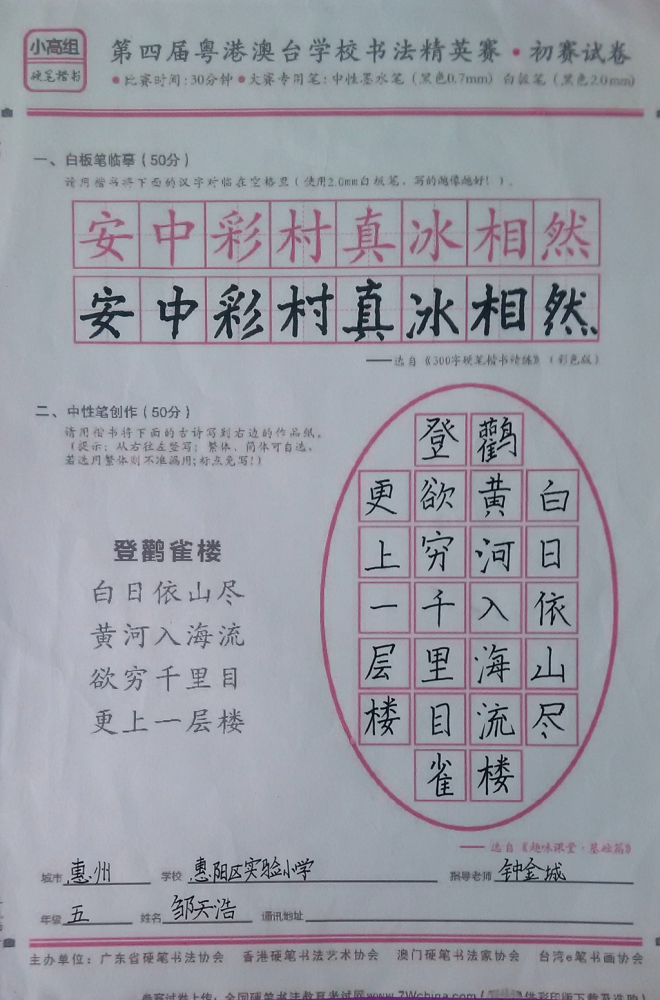 小高组
硬笔楷书
第四届粤港澳台学校书法精英赛·初赛试卷
●比赛时间:30分钟●大赛专用笔:中性墨水笔(黑色0.7mm) 白板笔(黑色2.0mm)
一、白板笔临摹(50分)
请用楷书将下面的汉字对临在空格里(使用2.0mm白板笔,写的越像越好!)。
安中彩村真冰相然
安中彩村真冰相然
——选自《300字硬笔楷书精练》(彩色版)
二、中性笔创作(50分)
请用楷书将下面的古诗写到右边的作品纸。
(提示:从右往左竖写;繁体、简体可自选,
若选用繁体则不准漏用;标点免写!)
登鹳雀楼
白日依山尽
黄河入海流
欲穷千里目
更上一层楼
登鹳
更欲黄白
上穷河日
一千入依
层里海山
楼目流尽
雀楼
——选自《趣味课堂·基础篇》
城市 惠州 学校 惠阳区实验小学 指导老师 钟金城
年级 五 姓名 邹天浩 通讯地址
主办单位:广东省硬笔书法协会 香港硬笔书法艺术协会 澳门硬笔书法家协会 台湾e笔书画协会
参赛试卷上传:全国硬笔书法教育考试网www.7Wchina.com(